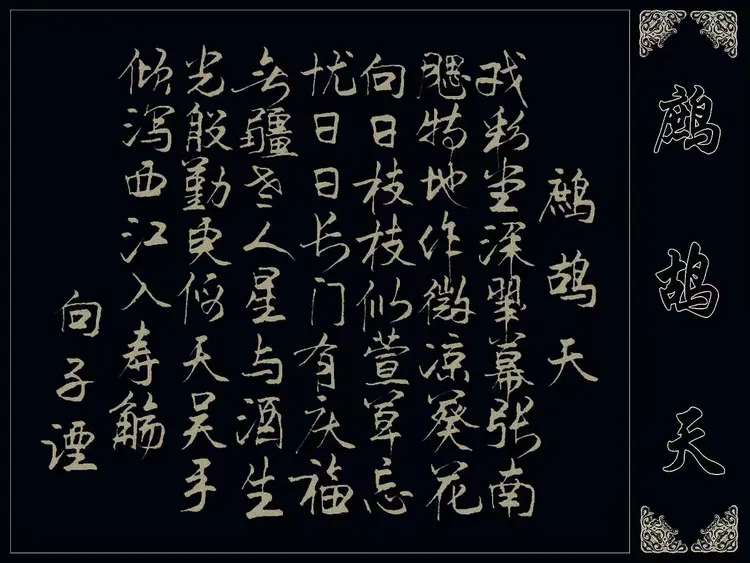 鹧鸪天
鹧鸪天
戏彩堂深翠幕张南
飔特地作微凉葵花
向日枝枝似萱草忘
忧日日长门有庆福
无疆老人星与酒生
光殷勤更假天吴手
倾泻西江入寿觞
向子諲